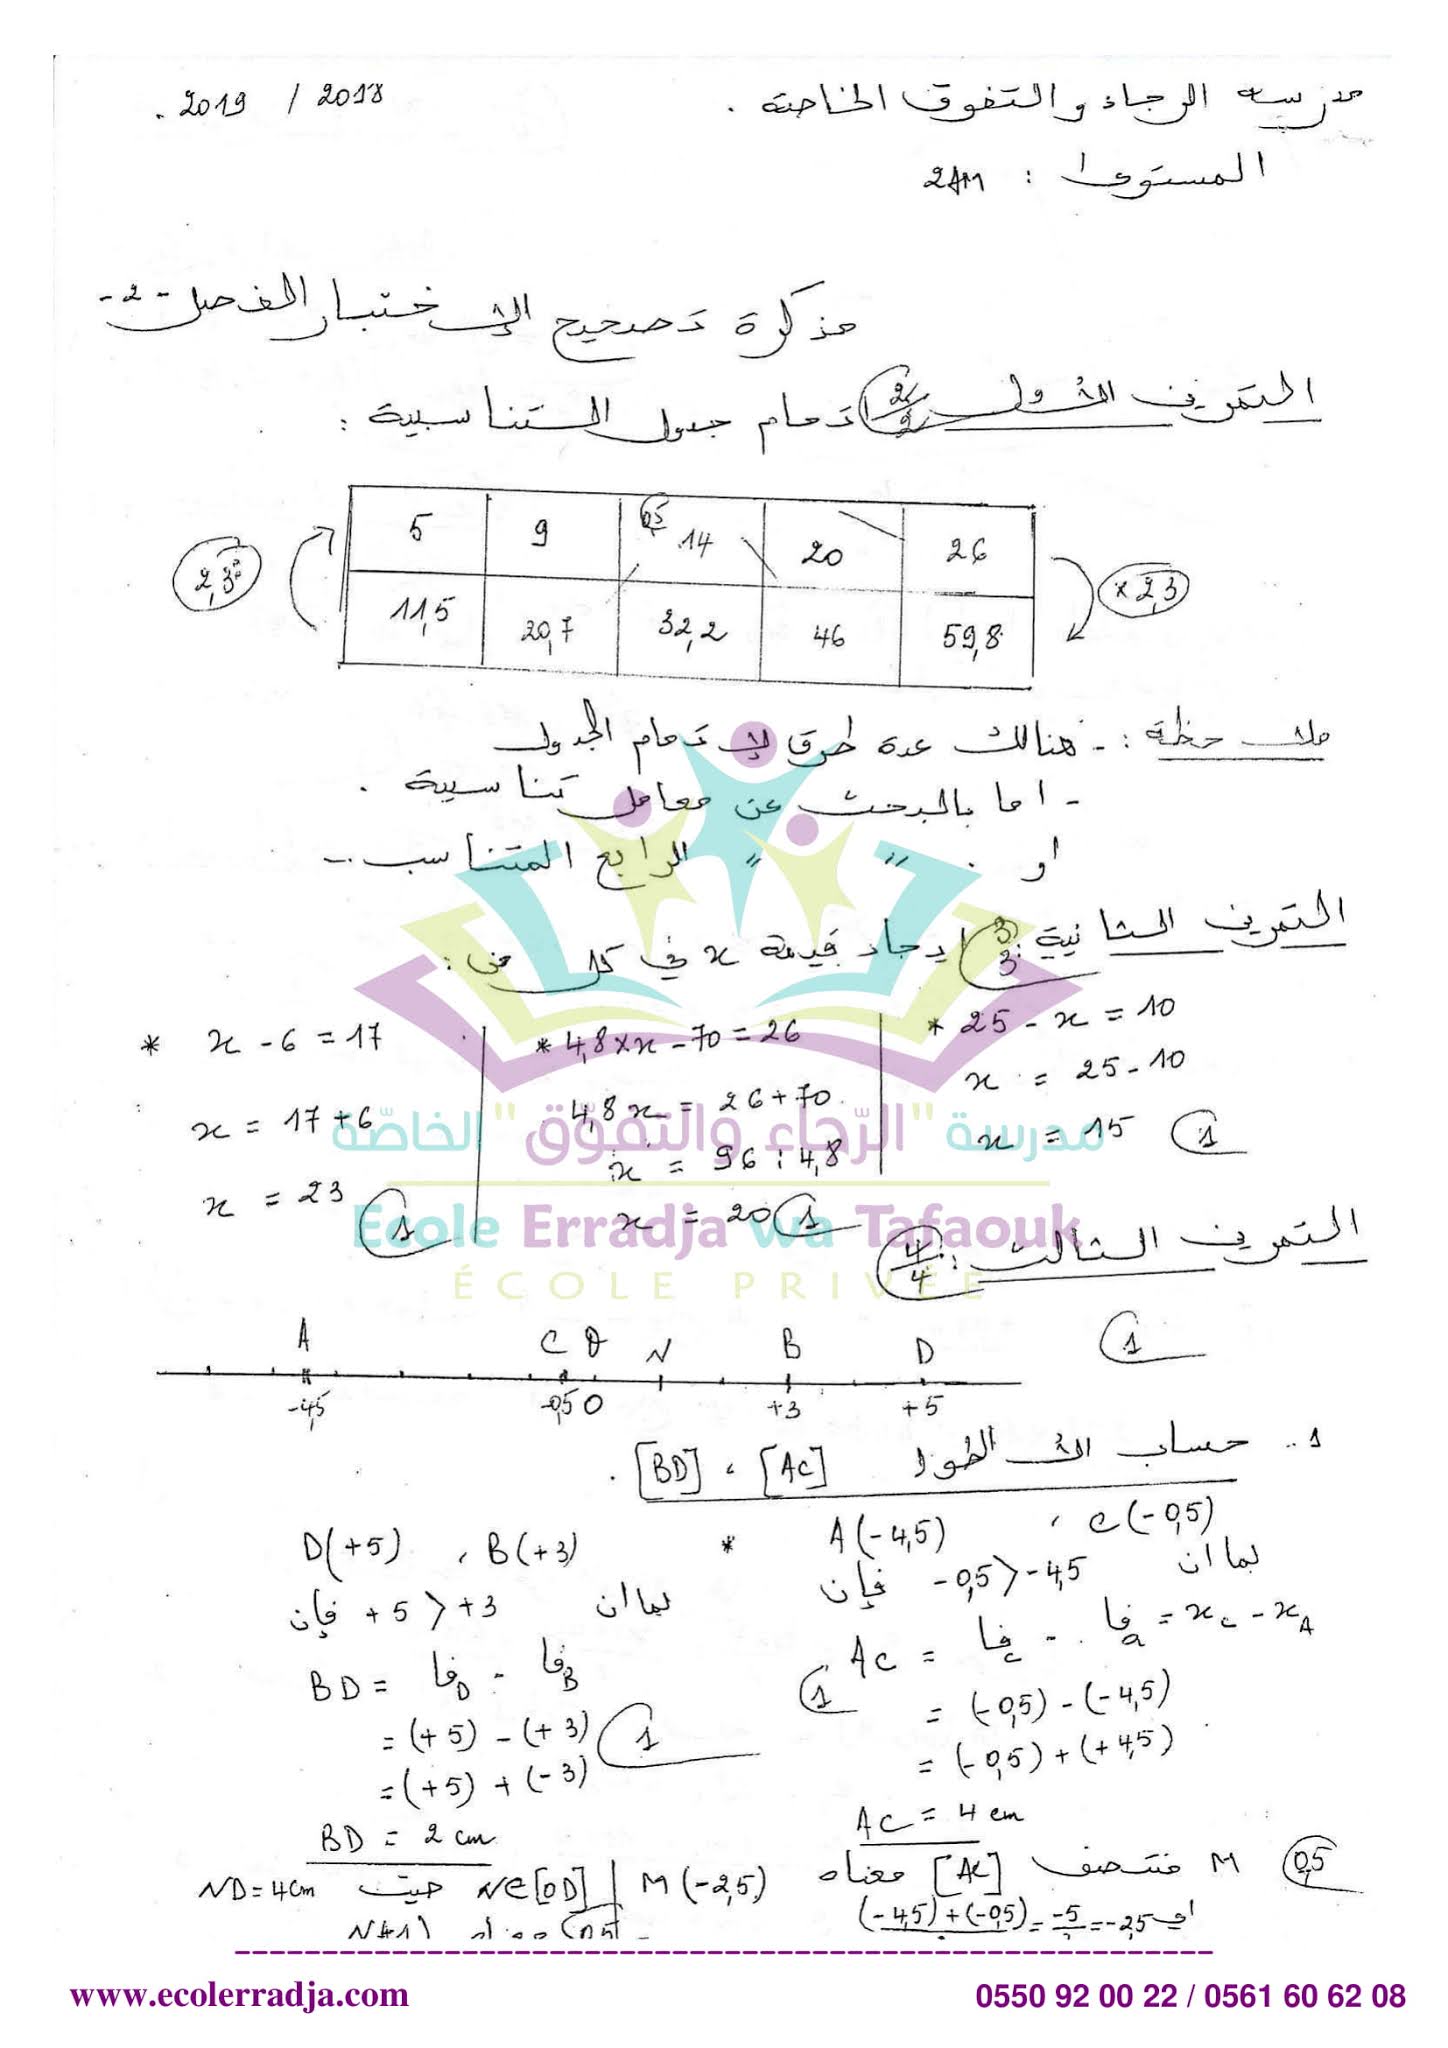 مدرسة الرجاء والتفوق الخاصة . 2018 / 2019 .
المستوى : 2AM
مذكرة تصحيح الإختبار الفصل -2-
التمرين الأول 2/2 إتمام جدول التناسبية :
5 9 0,5 14 20 26
2,3 × 2,3
11,5 20,7 32,2 46 59,8
ملاحظة : - هنالك عدة طرق لإتمام الجدول
- اما بالبحث عن معامل تناسبية .
او " " الرابع المتناسب ..
التمرين الثانية : 3/3 إيجاد قيمة x في كل من :
* 25 - x = 10
x = 25 - 10
x = 15 1
* 4,8 × x - 70 = 26
4,8 x = 26 + 70
x = 96 : 4,8
x = 20 1
* x - 6 = 17
x = 17 + 6
x = 23 1
مدرسة "الرّجاء والتفوّق" الخاصّة
Ecole Erradja wa Tafaouk
ÉCOLE PRIVÉE
التمرين الثالث : 4/4
A C O N B D 1
-4,5 -0,5 0 +3 +5
1 .. حساب الأطوال [AC] ، [BD] .
A(-4,5) ، C(-0,5)
بما ان -0,5 > -4,5 فإن
AC = فاc - فاa = xC - xA
1 = (-0,5) - (-4,5)
= (-0,5) + (+4,5)
AC = 4 cm
* D(+5) ، B(+3)
بما ان +5 > +3 فإن
BD = فاD - فاB
= (+5) - (+3) 1
= (+5) + (-3)
BD = 2 cm
0,5 M منتصف [AC] معناه M(-2,5)
اي (-4,5)+(-0,5) = -5 = -2,5
N∈[OD] حيث ND = 4cm
N(+1) 0,5
www.ecolerradja.com 0550 92 00 22 / 0561 60 62 08